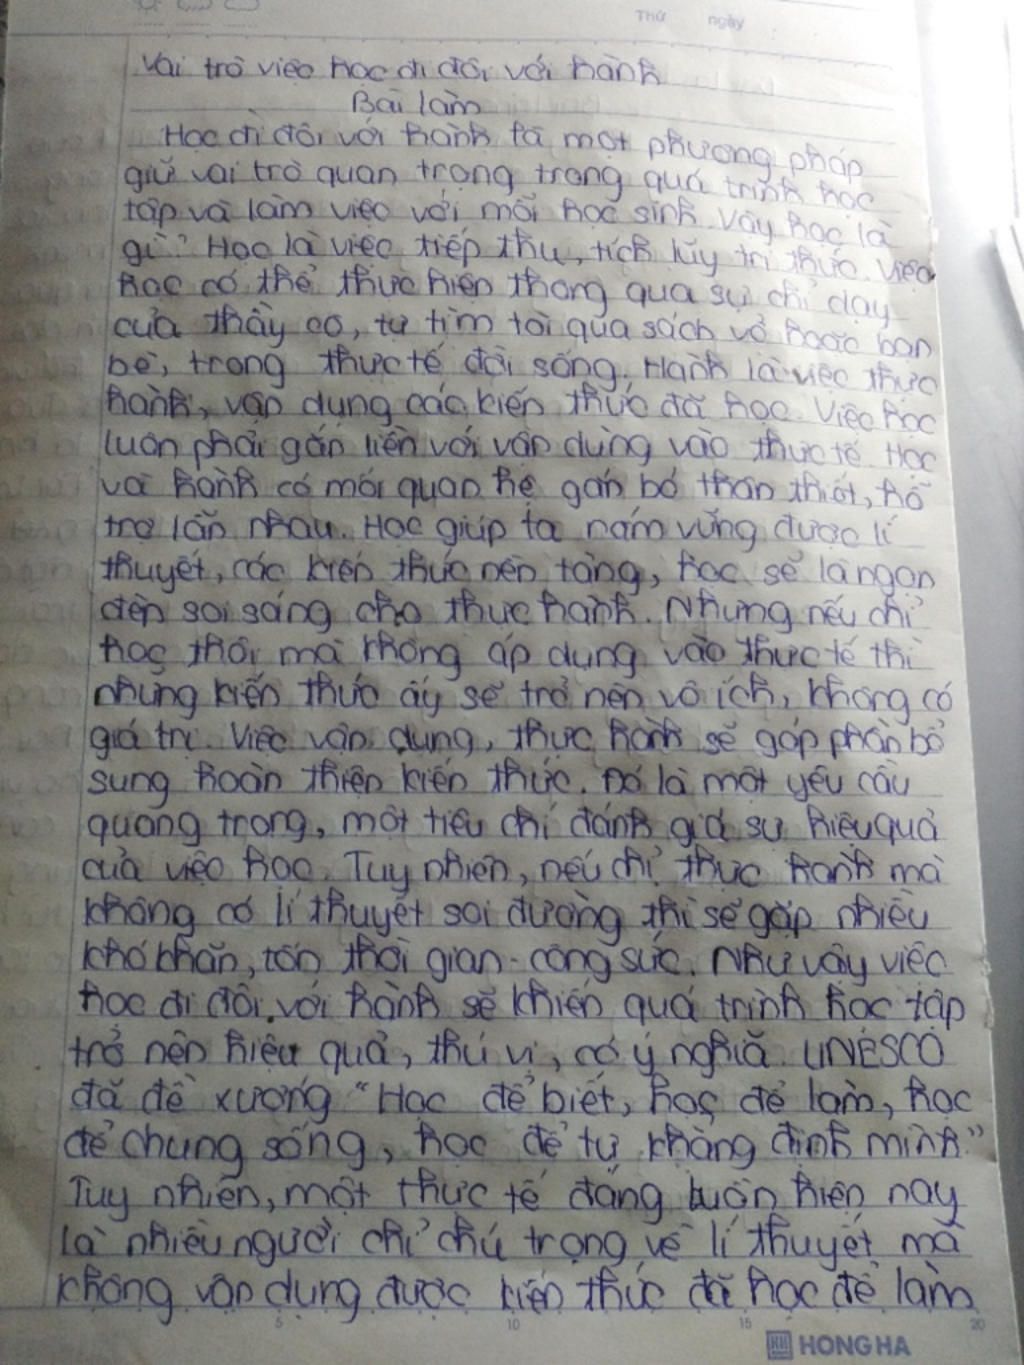 Thứ ngày
Vai trò việc học đi đôi với hành
Bài làm
Học đi đôi với hành là một phương pháp
giữ vai trò quan trọng trong quá trình học
tập và làm việc với mỗi học sinh. Vậy học là
gì? Học là việc tiếp thu, tích lũy tri thức. Việc
học có thể thực hiện thông qua sự chỉ dạy
của thầy cô, tự tìm tòi qua sách vở hoặc bạn
bè, trong thực tế đời sống. Hành là việc thực
hành, vận dụng các kiến thức đã học. Việc học
luôn phải gắn liền với vận dùng vào thực tế. Học
và hành có mối quan hệ gắn bó thân thiết, hỗ
trợ lẫn nhau. Học giúp ta nắm vững được lí
thuyết, các kiến thức nền tảng, học sẽ là ngọn
đèn soi sáng cho thực hành. Nhưng nếu chỉ
học thôi mà không áp dụng vào thực tế thì
những kiến thức ấy sẽ trở nên vô ích, không có
giá trị. Việc vận dụng, thực hành sẽ góp phần bổ
sung hoàn thiện kiến thức. Đó là một yêu cầu
quang trọng, một tiêu chí đánh giá sự hiệu quả
của việc học. Tuy nhiên, nếu chỉ thực hành mà
không có lí thuyết soi đường thì sẽ gặp nhiều
khó khăn, tốn thời gian - công sức. Như vậy việc
học đi đôi với hành sẽ khiến quá trình học tập
trở nên hiệu quả, thú vị, có ý nghĩa. UNESCO
đã đề xướng "Học để biết, học để làm, học
để chung sống, học để tự khẳng định mình."
Tuy nhiên, một thực tế đáng buồn hiện nay
là nhiều người chỉ chú trọng về lí thuyết mà
không vận dụng được kiến thức đã học để làm
5 10 15 20
HONG HA